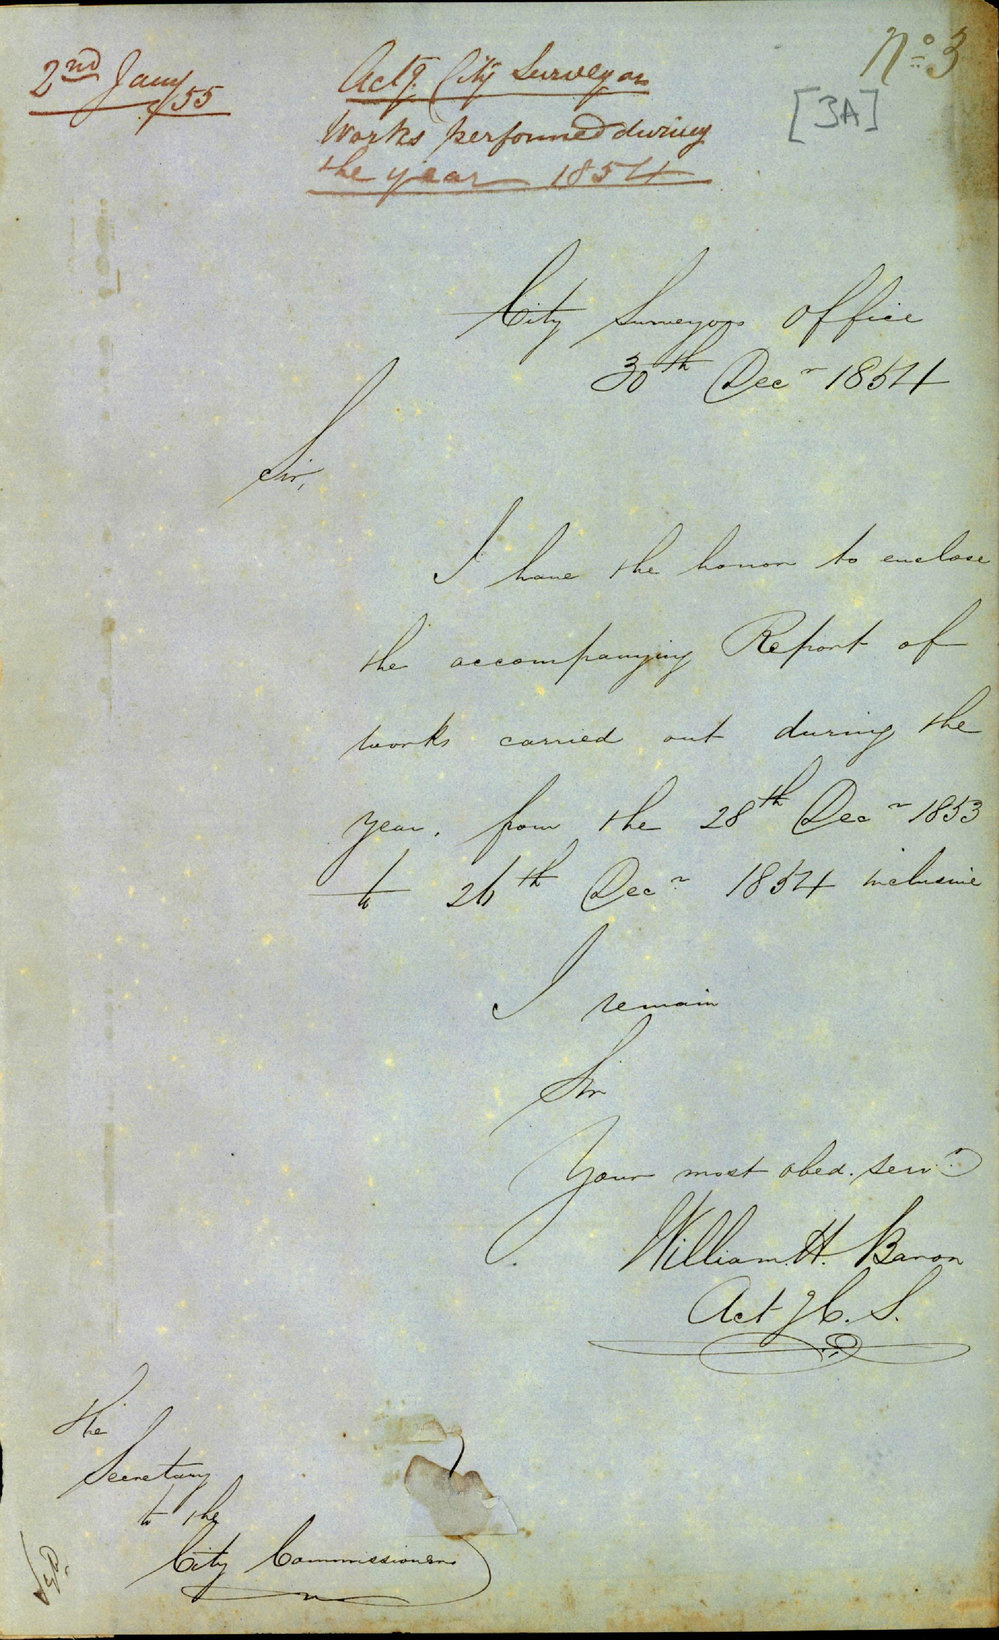 No. 3
[3A]
2nd Jany/55
Actg. City Surveyor
Works performed during
the year 1854
City Surveyors Office
30th Decr 1854
Sir,
I have the honor to enclose
the accompanying Report of
works carried out during the
year. from the 28th Decr 1853
to 26th Decr 1854 inclusive
I remain
Sir
Your most obed. servt
William. H. Baron
Actg C. S.
The
Secretary
to the
City Commissioners